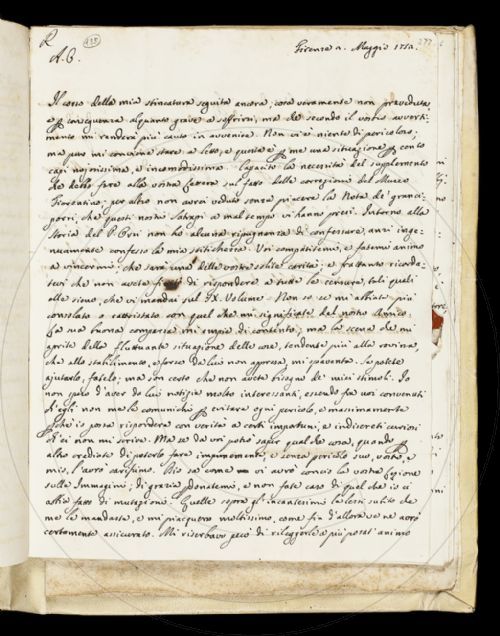 R
A. C.
Firenze 2. Maggio 1752.
277
Il corso della mia stincatura seguita ancora; cosa veramente non preveduta,
e p conseguenza alquanto grave a soffrirsi, ma che secondo il vostro avverti-
mento mi renderà più cauto in avvenire. Non vi è niente di pericoloso;
ma pure mi conviene stare a letto, e questa è p me una situazione p cento
capi nojosissima, e incomodissima. Capisco la necessità del supplemento
che debbo fare alla vostra lettera sul fatto delle correzioni del Museo
Fiorentino; per altro non avrei veduto senza piacere la Nota de' granci-
porri, che questi nostri Satrapi a mal tempo vi hanno presi. Intorno alla
Storia del P. Orsi non ho alcuna ripugnanza di confessare, anzi inge-
nuamente confesso la mia stitichezza. Voi compatitemi, e fatemi animo
a vincermi, che sarà una delle vostre solite carità: e frattanto ricorda-
tevi che non avete di rispondere a tutte le censure, tali quali
elle sieno, che vi mandai sul IX. Volume. Non so se mi abbiate più
consolato o rattristato con quel che mi significate del nostro Amico.
La sua buona comparsa mi empie di contento; ma la scena che mi
aprite della fluttuante situazione delle cose, tendente più alla rovina,
che allo stabilimento, e forse da lui non appresa, mi spaventa. Se potete
ajutarlo, fatelo; ma son certo che non avete bisogno de' miei stimoli. Io
non spero d'aver da lui notizie molto interessanti, essendo fra noi convenuti
ch'egli non me le comunichi p evitare ogni pericolo, e massimamente
pchè io possa rispondere con verità a certi importuni, e indiscreti curiosi
ch'ei non mi scrive. Ma se da voi potrò saper qualche cosa, quando p
altro crediate di poterlo fare impunemente, e senza pericolo suo, vostro, e
mio, l'avrò carissimo. Dio sa come vi avrò concio la vostra
sulle Immagini; di grazia pdonatemi, e non fate caso di quel che io ci
abbia fatto di mutazione. Quelle sopra gl'incantesimi la lessi subito che
me la mandaste, e mi piacquero moltissimo, come fin d'allora ve ne avrò
certamente assicurato. Mi riserbavo però di rileggerle a più posat'animo